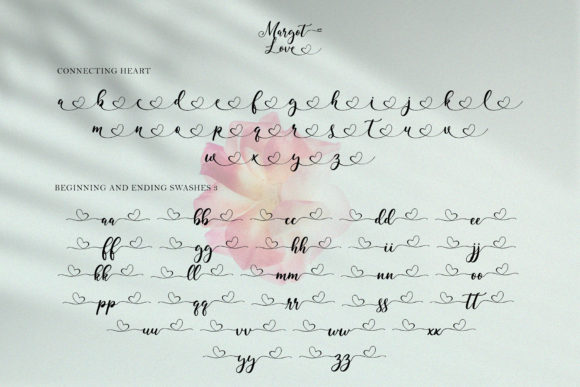 Margot
Love
CONNECTING HEART
a b c d e f g h i j k l
m n o p q r s t u v
w x y z
BEGINNING AND ENDING SWASHES 3
aa bb cc dd ee
ff gg hh ii jj
kk ll mm nn oo
pp qq rr ss tt
uu vv ww xx
yy zz